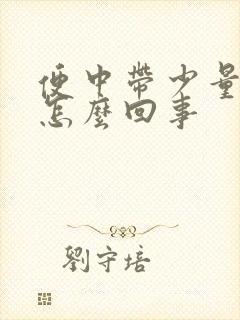 便中帶少量
怎麼回事
劉守培